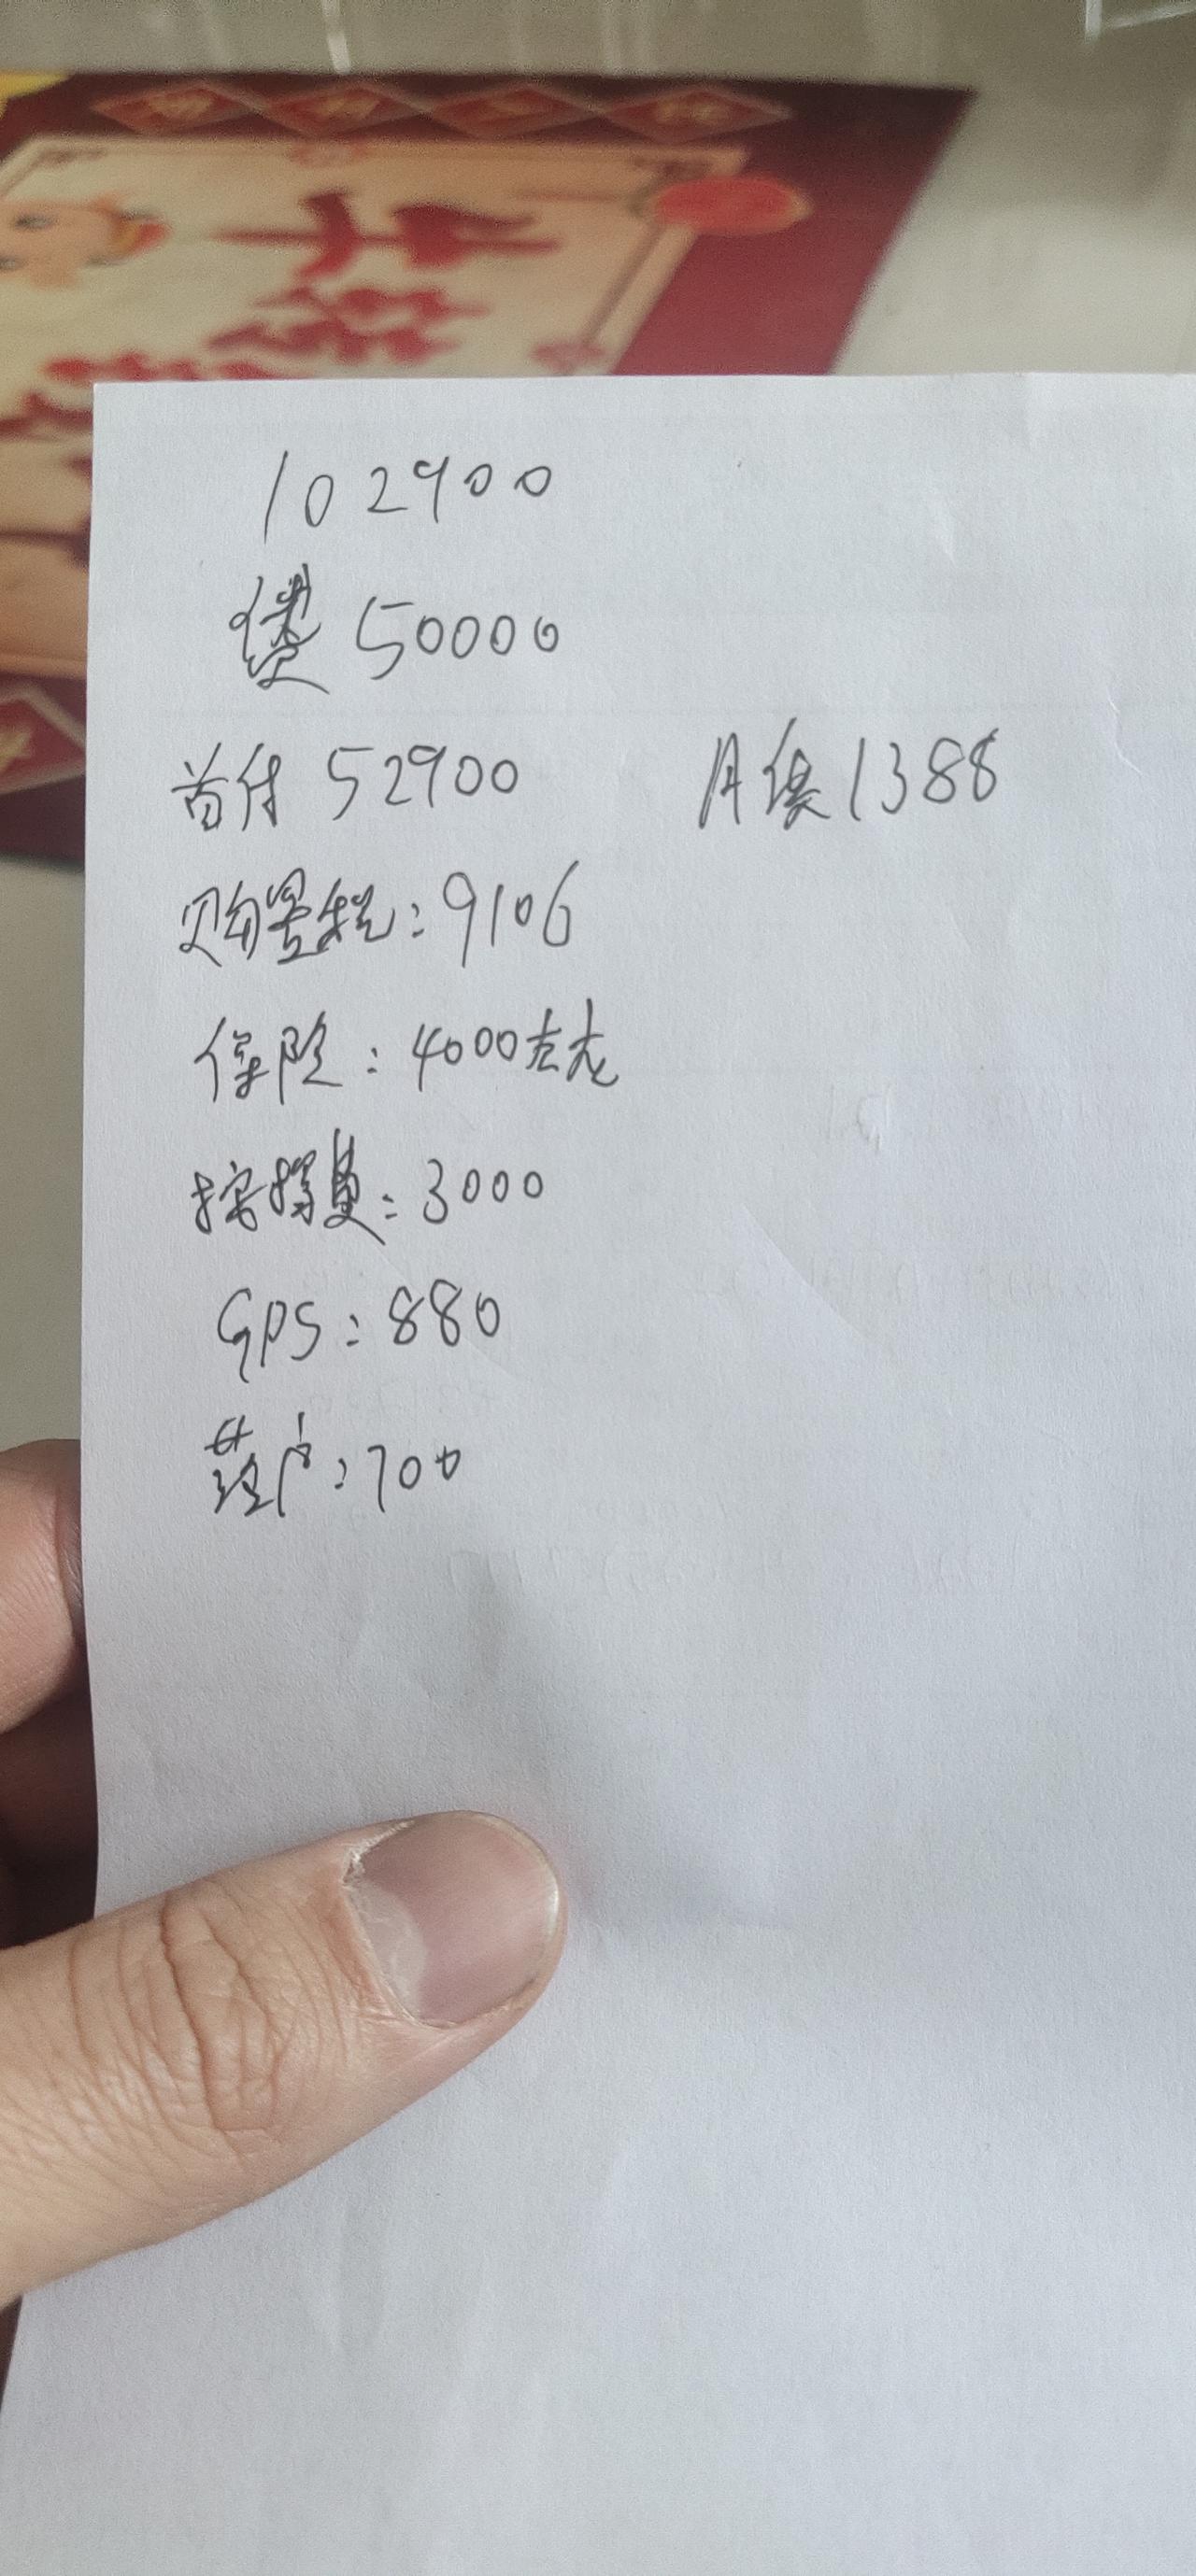 102900
贷 50000
首付 52900 月供1388
购置税:9106
保险:4000左右
按揭费:3000
GPS:880
落户:700